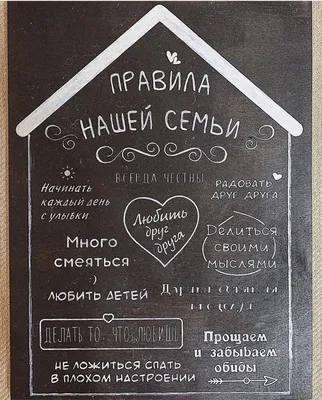 ПРАВИЛА
НАШЕЙ СЕМЬИ
ВСЕГДА ЧЕСТНЫ
Начинать
каждый день
с улыбки
РАДОВАТЬ
ДРУГ ДРУГА
Любить
друг
друга
Много
смеяться
:)
Делиться
СВОИМИ
МЫСЛЯМИ
ЛЮБИТЬ ДЕТЕЙ
ДЕЛАТЬ ТО, ЧТО ЛЮБИШЬ
Прощаем
и забываем
обиды
НЕ ЛОЖИТЬСЯ СПАТЬ
В ПЛОХОМ НАСТРОЕНИИ